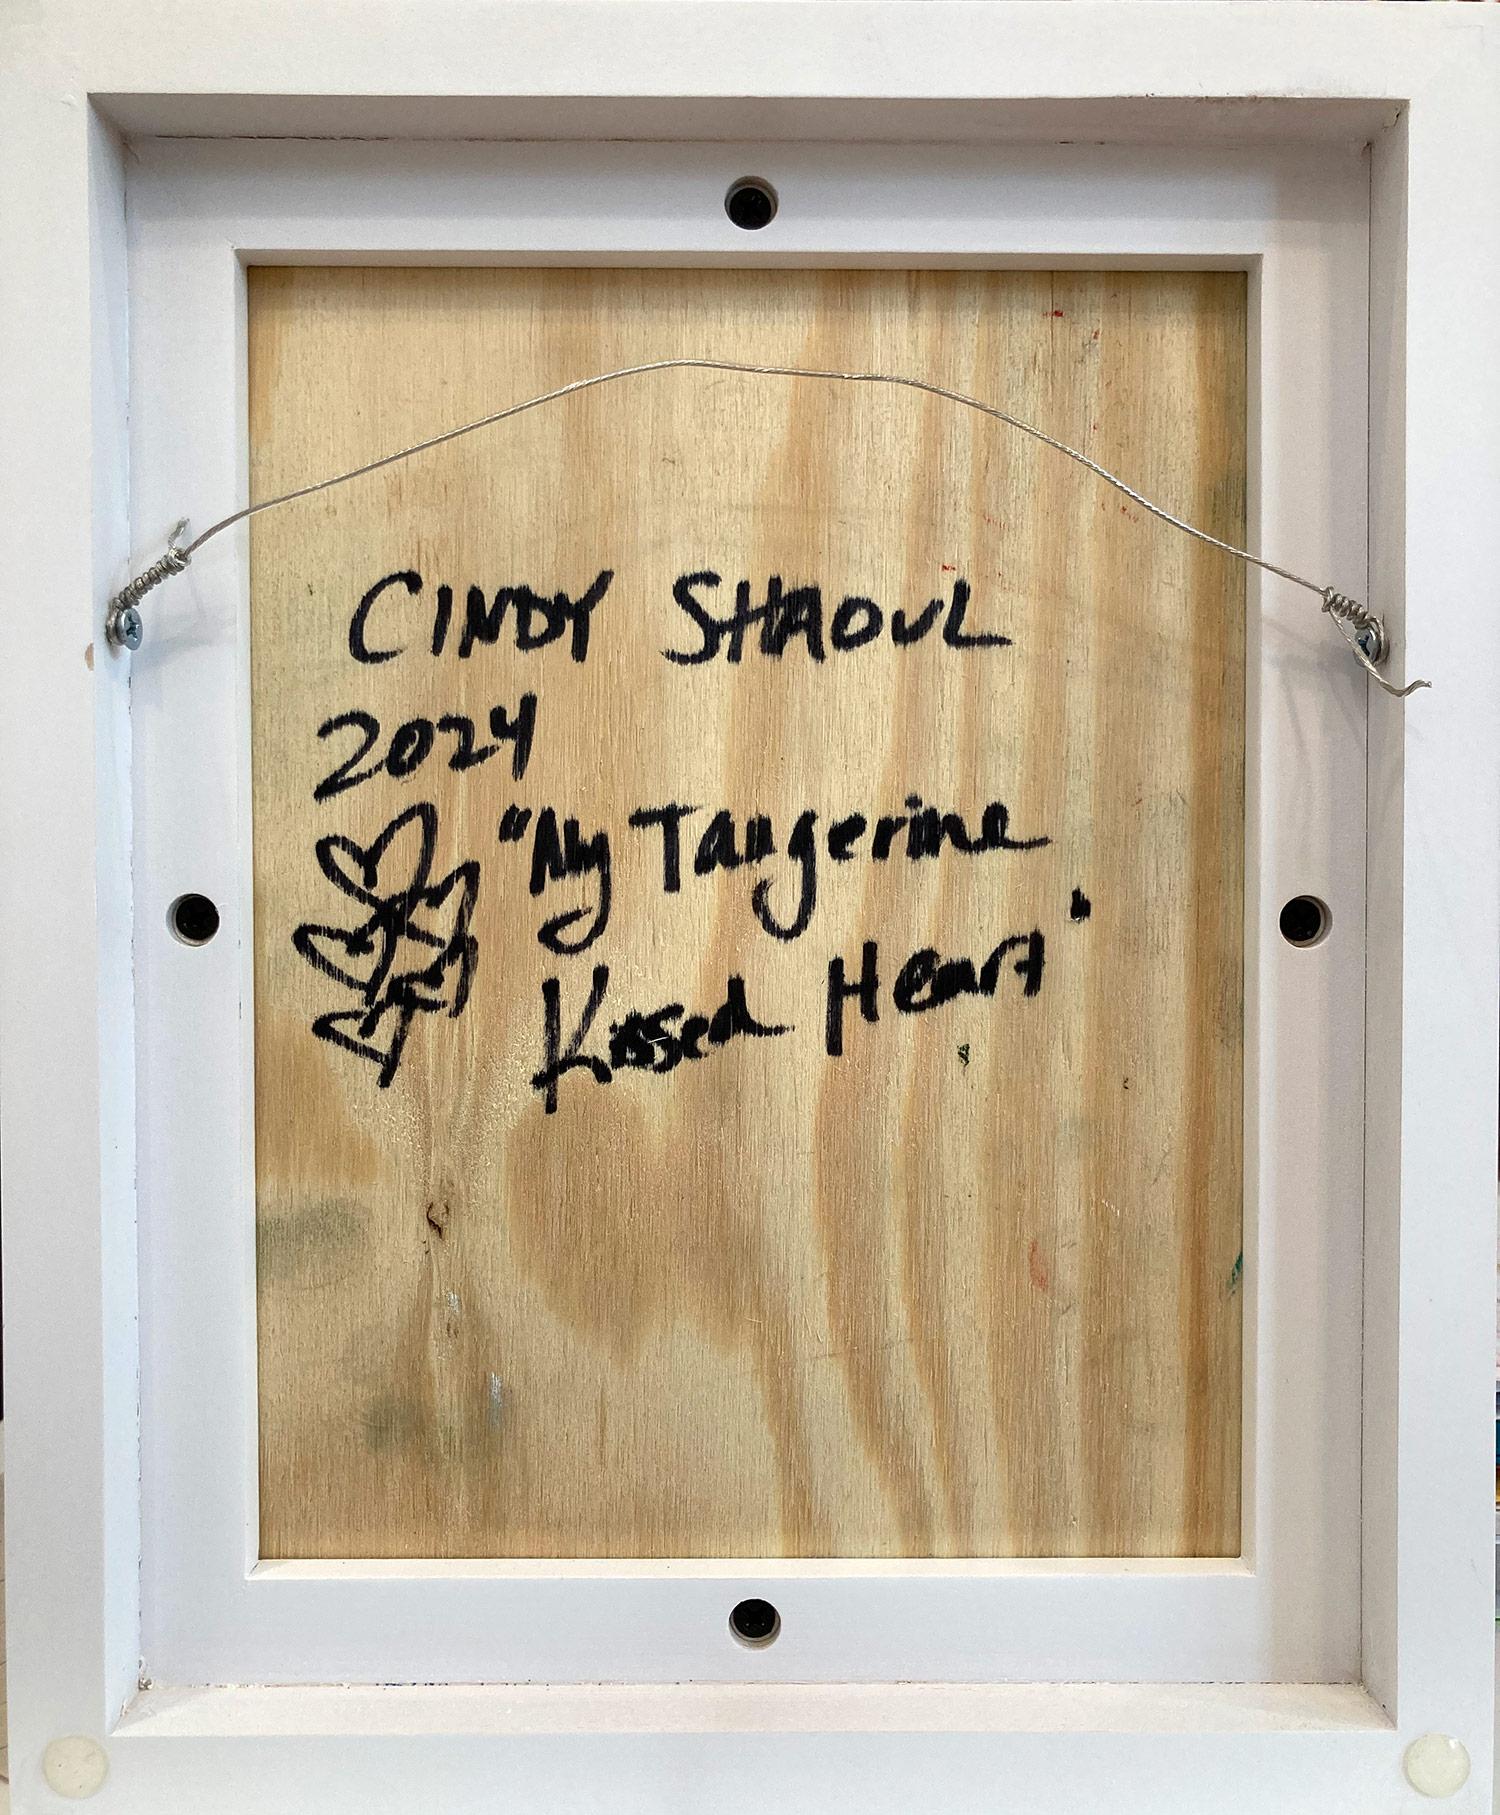 CINDY SHAOUL
2024
"My Tangerine
Kissed Heart"